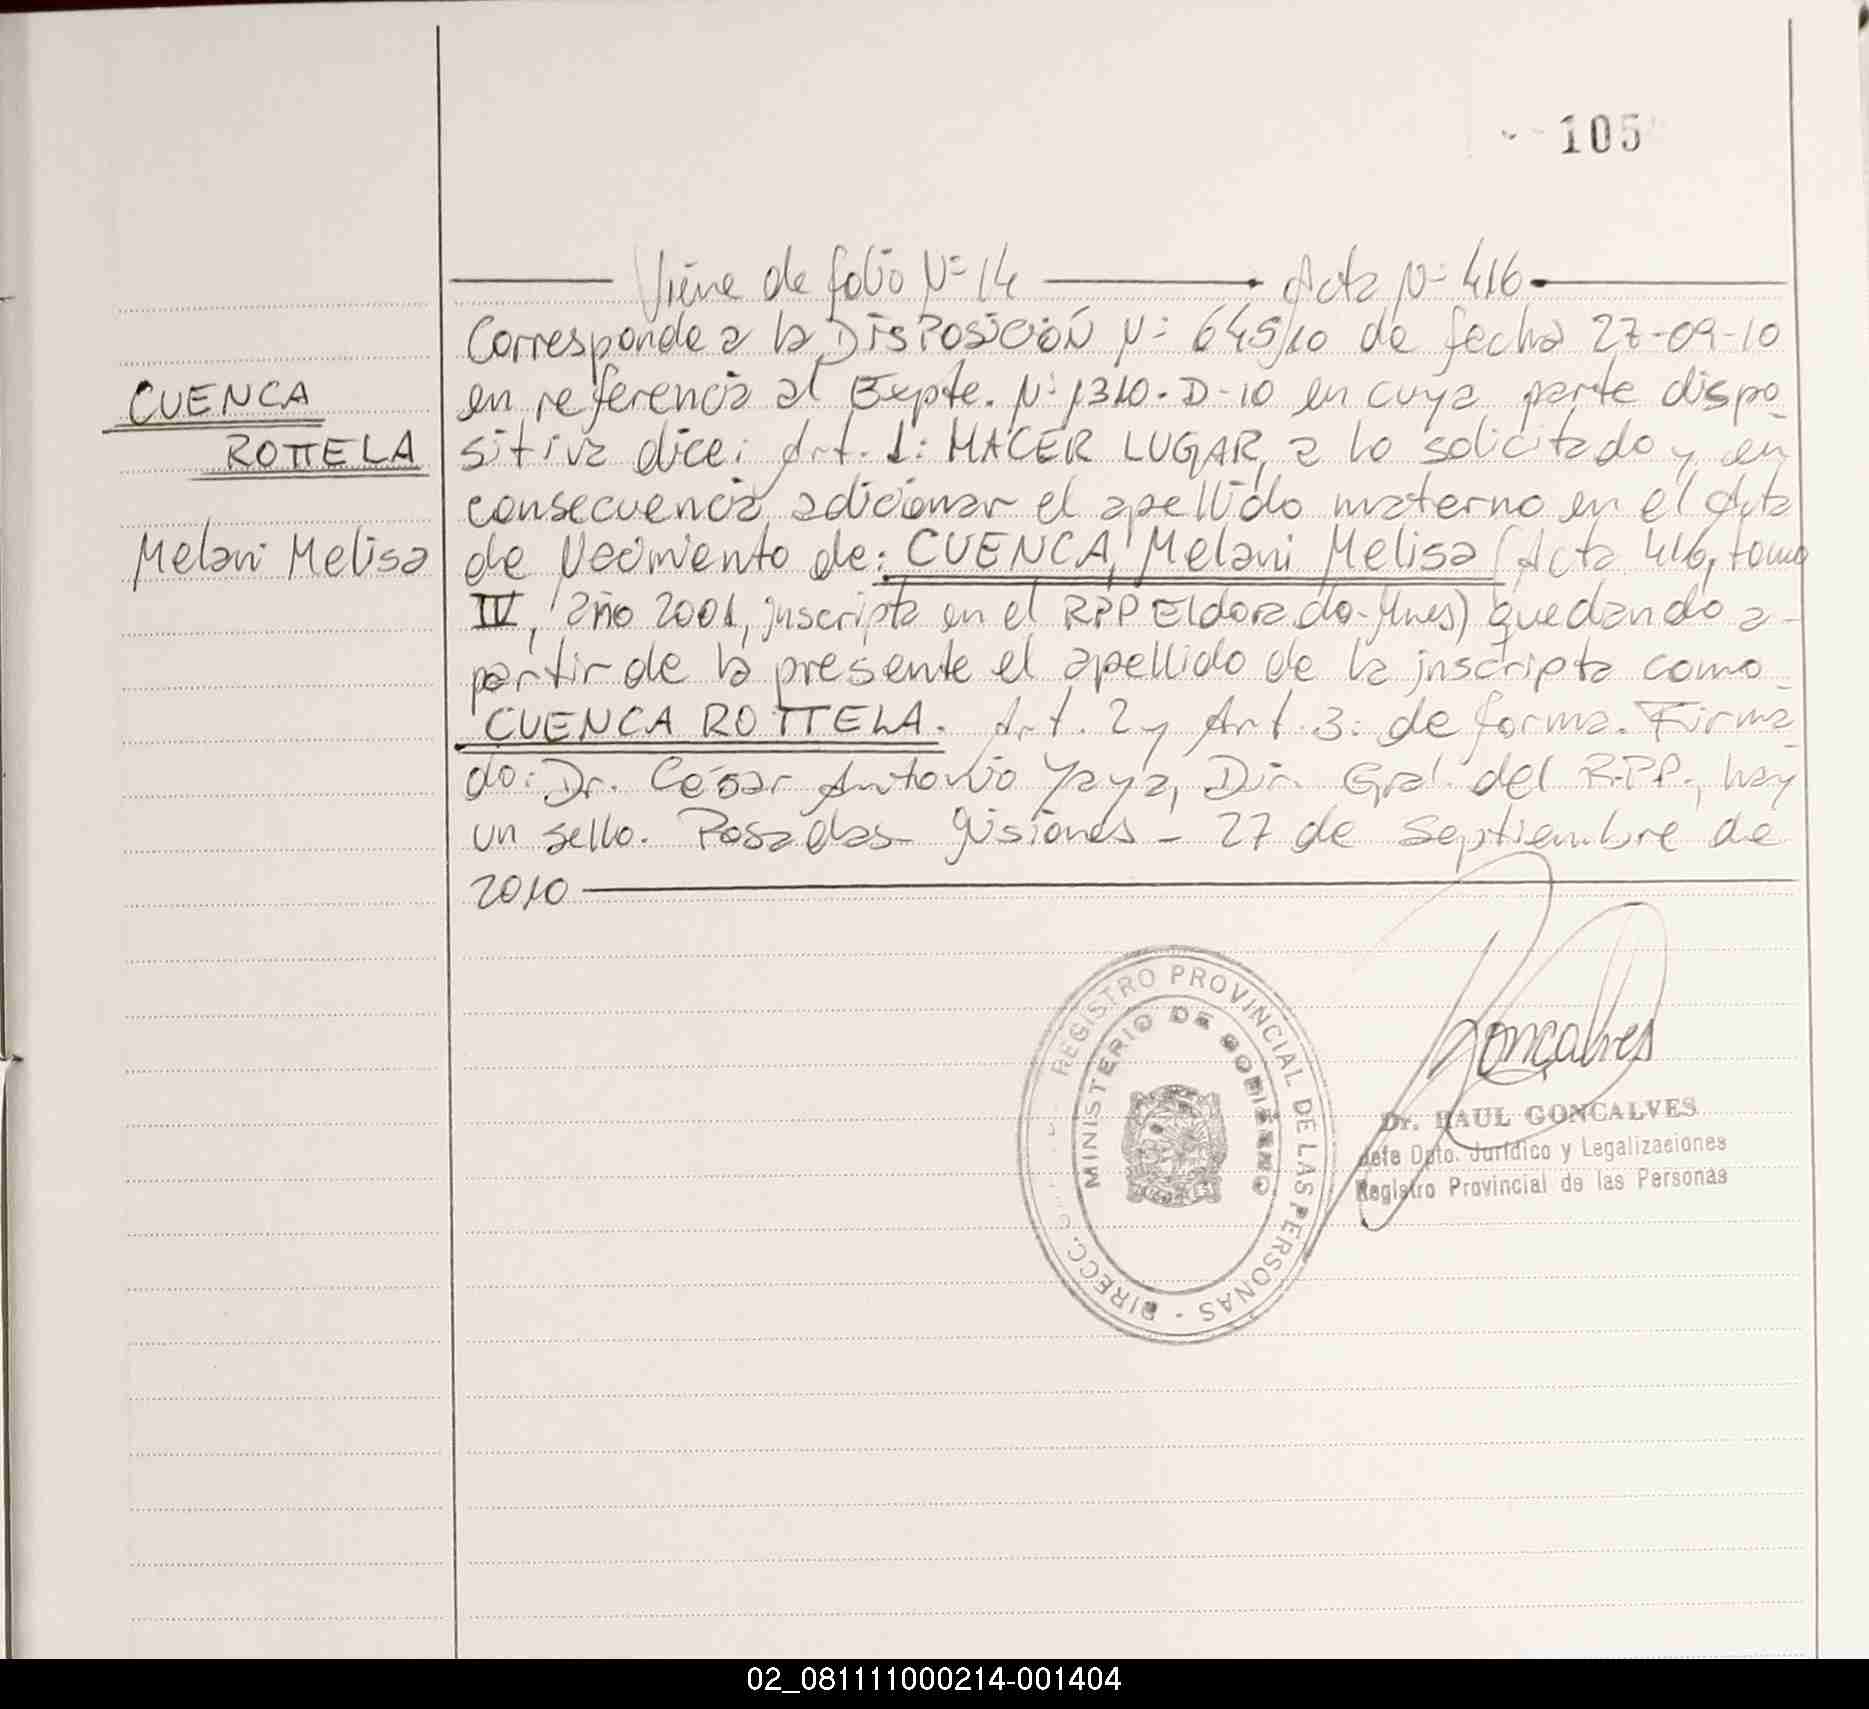 105
Viene de folio Nº 14 Acta Nº 416
Corresponde a la DISPOSICIÓN Nº 645/10 de fecha 27-09-10
CUENCA
en referencia al Expte. Nº 1310-D-10 en cuya parte dispo-
ROTTELA
sitiva dice: Art. 1: HACER LUGAR, a lo solicitado y en
consecuencia adicionar el apellido materno en el Acta
Melani Melisa
de Nacimiento de: CUENCA, Melani Melisa (Acta 416, tomo
IV, año 2001, inscripta en el RPP Eldorado-Mnes) quedando a-
partir de la presente el apellido de la inscripta como
CUENCA ROTTELA. Art. 2 y Art. 3: de forma. Firma-
do: Dr. César Antonio Yaya, Dir. Gral. del R.P.P., hay
un sello. Posadas Misiones - 27 de Septiembre de
2010
DIRECC. REGISTRO PROVINCIAL DE LAS PERSONAS -
MINISTERIO DE GOBIERNO
Gonçalves
Dr. RAUL GONCALVES
Jefe Dpto. Jurídico y Legalizaciones
Registro Provincial de las Personas
02_081111000214-001404